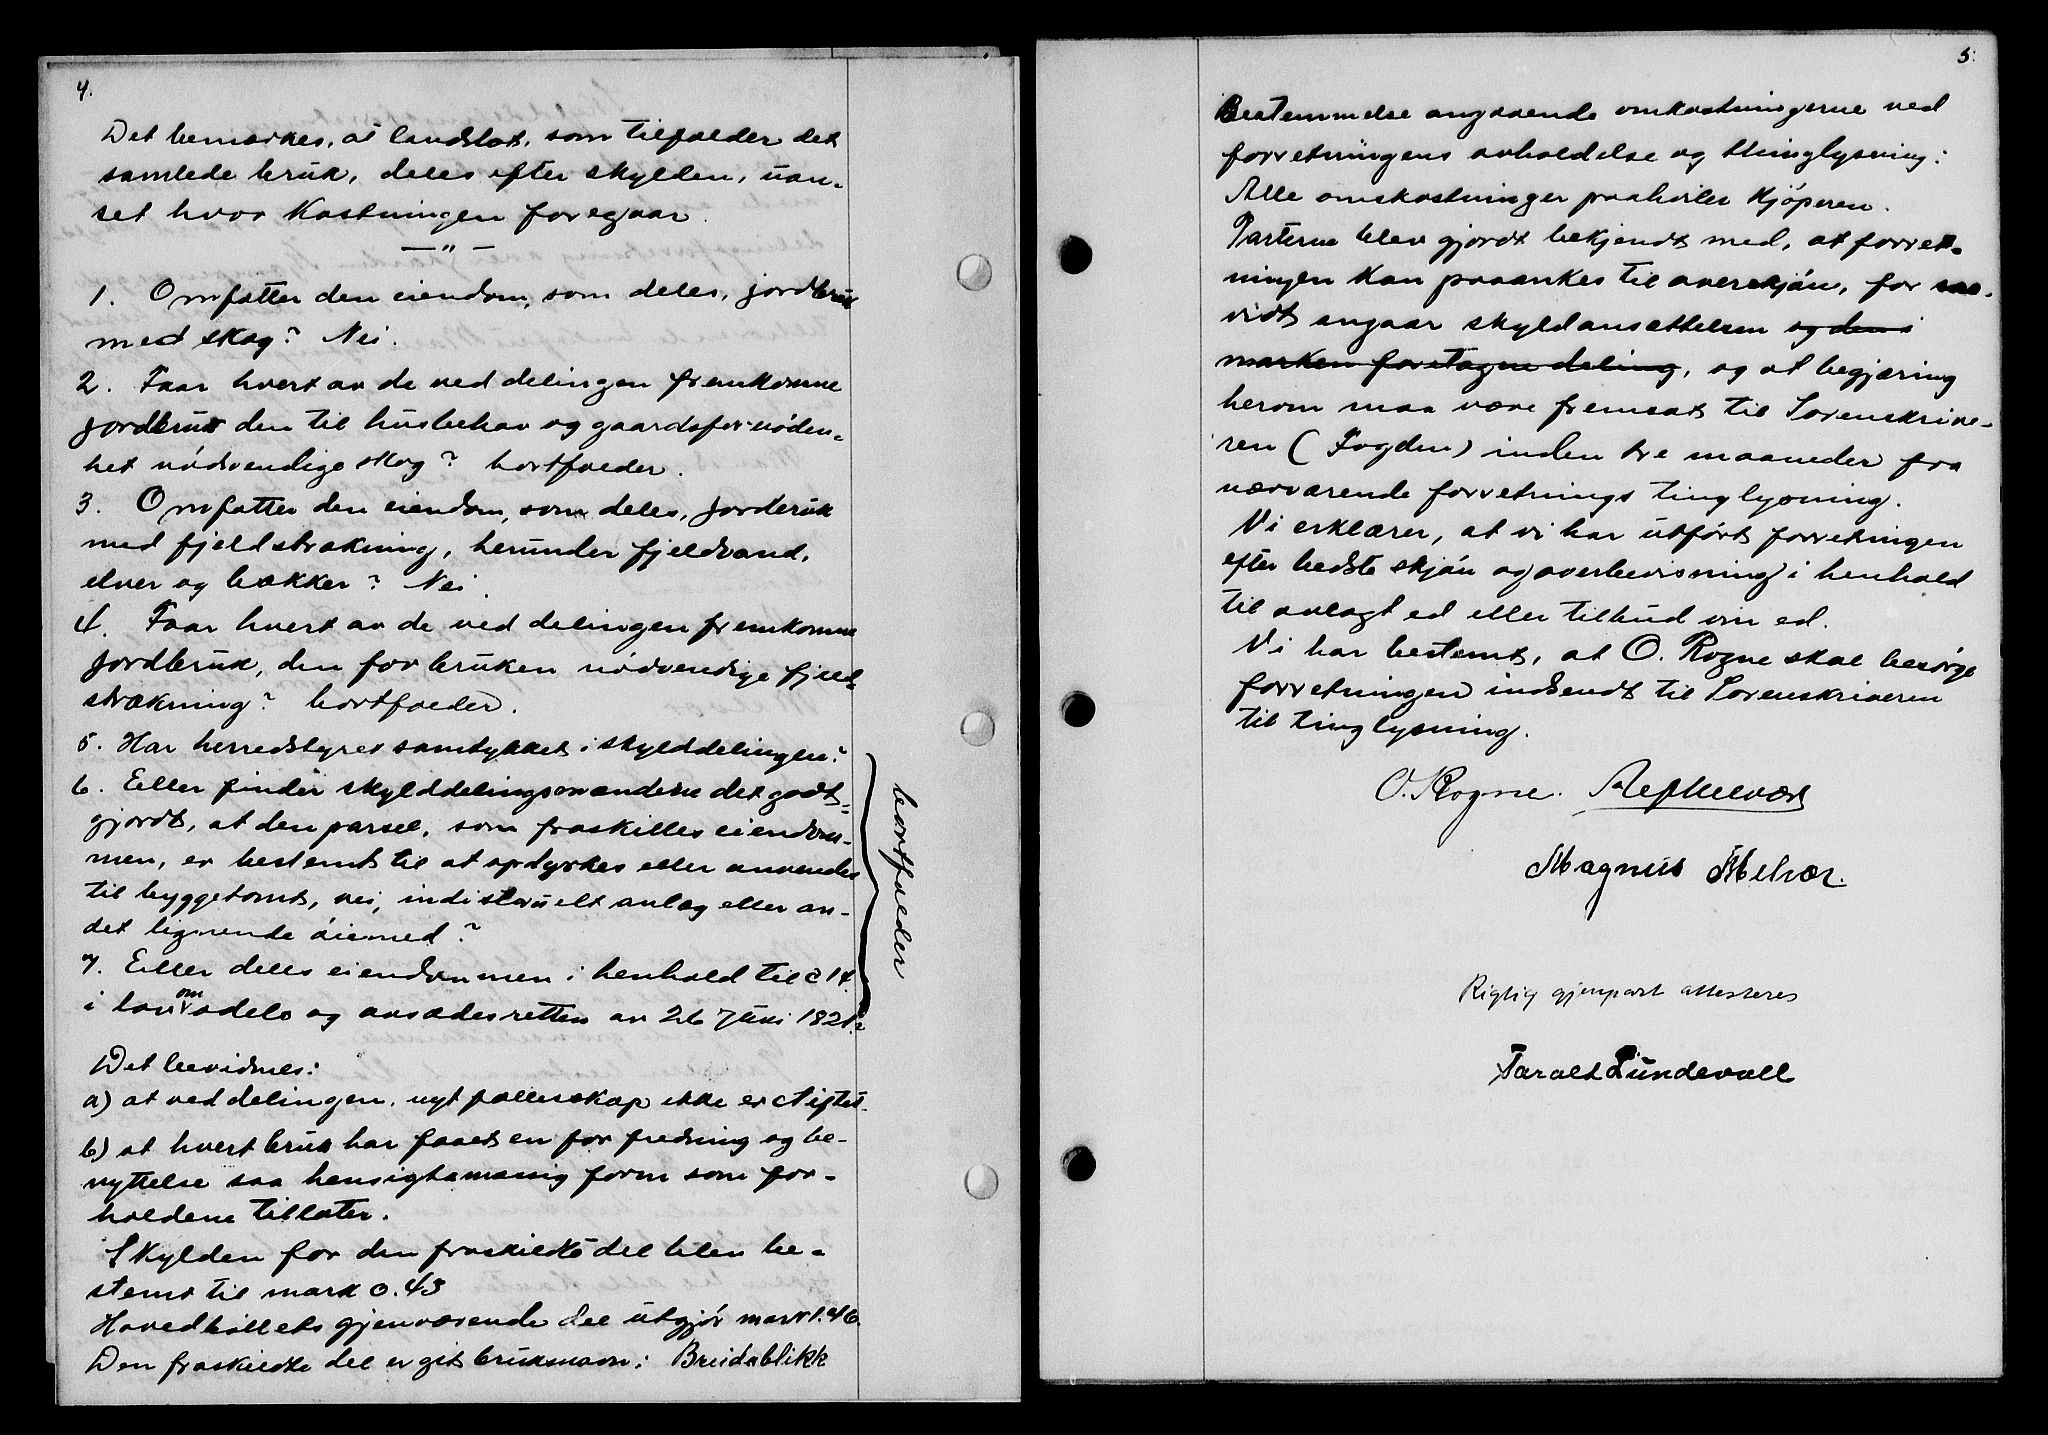 4.
Det bemærkes, at landslot, som tilfalder det
samlede bruk, deles efter skylden, uan-
set hvor kastningen foregaar.
— " —
1. Omfatter den eiendom, som deles, jordbruk
med skog? Nei.
2. Faar hvert av de ved delingen fremkomne
jordbruk den til husbehov og gaardsfornöden-
het nödvendige skog? bortfalder.
3. Omfatter den eiendom, som deles, jordbruk
med fjeldstrækning, herunder fjeldvand,
elver og bækker? Nei.
4. Faar hvert av de ved delingen fremkomne
jordbruk, den for bruken nödvendige fjeld-
strækning? bortfalder.
5. Har herredstyret samtykket i skylddelingen?
6. Eller finder skylddelingsmændene det godt-
gjordt, at den parsel, som fraskilles eiendom-
men, er bestemt til at opdyrkes eller anvendes
til byggetomt, vei, industrielt anlæg eller an-
det lignende öiemed?
7. Eller deles eiendommen i henhold til § 14
i lov om odels og aasædesretten av 26 Juni 1821?
bortfalder
Det bevidnes:
a) at ved delingen nyt fællesskap ikke er stiftet.
b) at hvert bruk har faaet en for fredning og be-
nyttelse saa hensigtsmæssig form som for-
holdene tillater.
Skylden for den fraskildte del blev be-
stemt til mark 0.43
Hovedbölets gjenværende del utgjör mark 1.46.
Den fraskildte del er git bruksnavn: Breidablikk
5.
Bestemmelse angaaende omkostningerne ved
forretningens avholdelse og thinglysning:
Alle omskostninger paahviler kjöperen.
Parterne blev gjordt bekjendt med, at forret-
ningen kan paaankes til overskjön, for saa-
vidt angaar skyldansættelsen og den i
marken foretagne deling, og at begjæring
herom maa være fremsat til Sorenskrive-
ren (Fogden) inden tre maaneder fra
nærværende forretnings tinglysning.
Vi erklærer, at vi har utfört forretningen
efter bedste skjön og overbevisning i henhold
til avlagt ed eller tilbud om ed.
Vi har bestemt, at O. Rogne skal besörge
forretningen indsendt til Sorenskriveren
til tinglysning.
O. Rogne. Melvær
Magnus Melvær.
Rigtig gjenpart attesteres
Taralt Lundevall